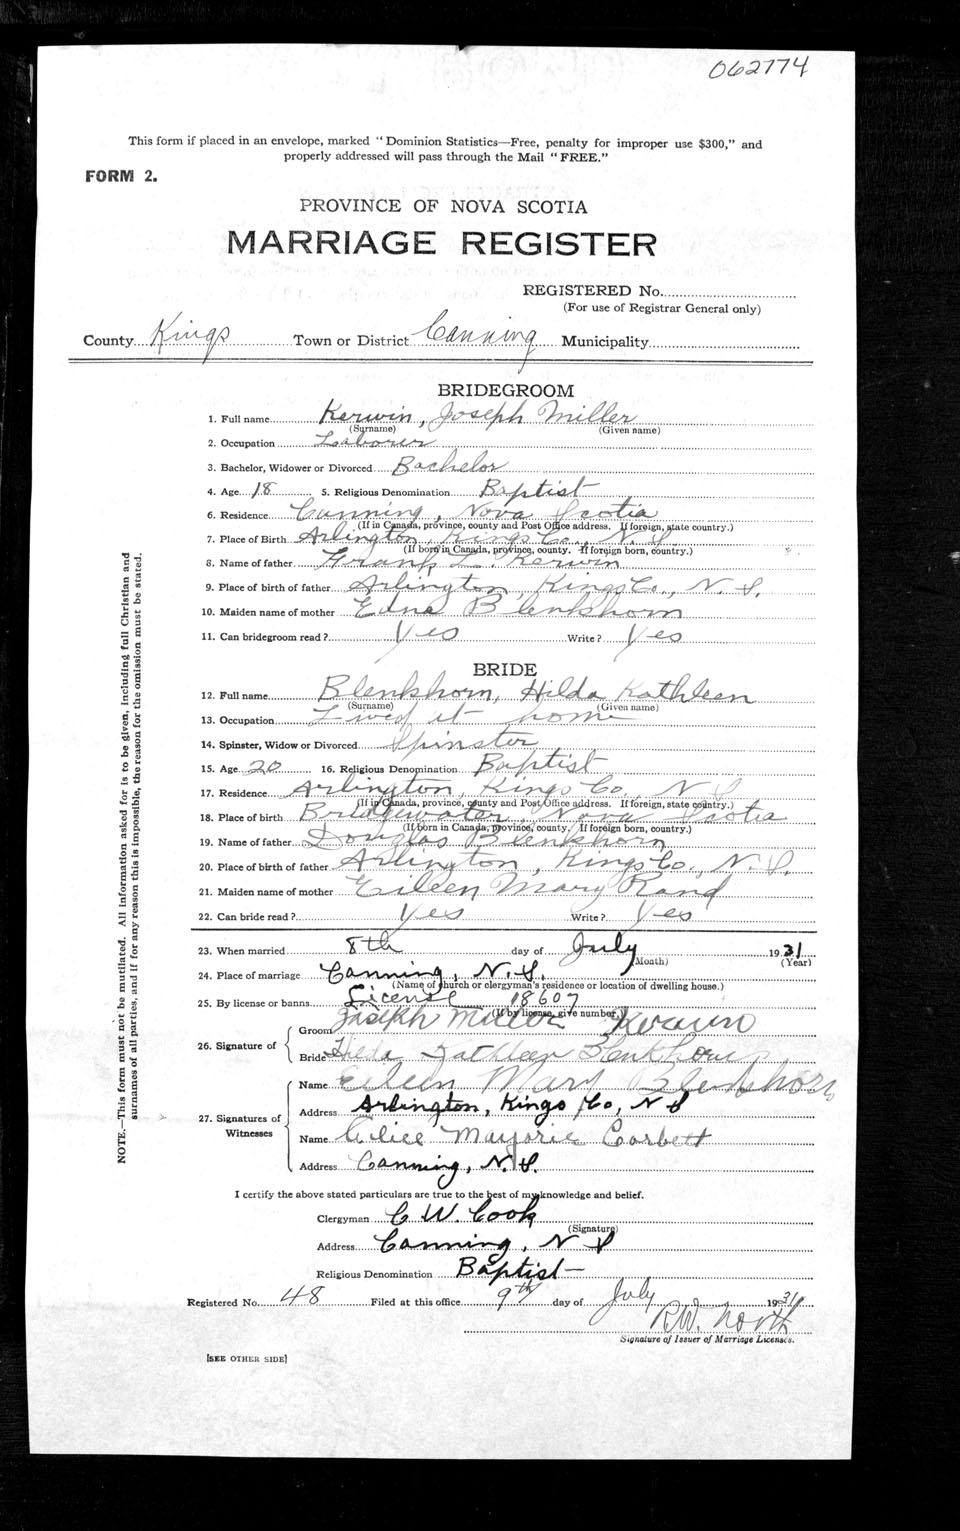 062774
This form if placed in an envelope, marked "Dominion Statistics—Free, penalty for improper use $300," and
properly addressed will pass through the Mail "FREE."
FORM 2.
PROVINCE OF NOVA SCOTIA
MARRIAGE REGISTER
REGISTERED No.
(For use of Registrar General only)
County Kings Town or District Canning Municipality
BRIDEGROOM
1. Full name Kerwin, Joseph Miller
(Surname) (Given name)
2. Occupation Laborer
3. Bachelor, Widower or Divorced Bachelor
4. Age 18 5. Religious Denomination Baptist
6. Residence Canning, Nova Scotia
(If in Canada, province, county and Post Office address. If foreign, state country.)
7. Place of Birth Arlington, Kings Co., N.S.
(If born in Canada, province, county. If foreign born, country.)
8. Name of father Frank L. Kerwin
9. Place of birth of father Arlington, Kings Co., N.S.
10. Maiden name of mother Edna Blenkhorn
11. Can bridegroom read? Yes Write? Yes
BRIDE
12. Full name Blenkhorn, Hilda Kathleen
(Surname) (Given name)
13. Occupation Lived at home
14. Spinster, Widow or Divorced Spinster
15. Age 20 16. Religious Denomination Baptist
17. Residence Arlington, Kings Co., N S
(If in Canada, province, county and Post Office address. If foreign, state country.)
18. Place of birth Bridgewater, Nova Scotia
(If born in Canada, province, county. If foreign born, country.)
19. Name of father Douglas Blenkhorn
20. Place of birth of father Arlington, Kings Co., N.S.
21. Maiden name of mother Eileen Mary Rand
22. Can bride read? Yes Write? Yes
23. When married 8th day of July 1931
(Month) (Year)
24. Place of marriage Canning, N.S.
(Name of church or clergyman's residence or location of dwelling house.)
25. By license or banns License 18607
(If by license, give number.)
26. Signature of
Groom Joseph Miller Kerwin
Bride Hilda Kathleen Blenkhorn
27. Signatures of Witnesses
Name Eileen Mary Blenkhorn
Address Arlington, Kings Co, N S
Name Alice Marjorie Corbett
Address Canning, N.S.
I certify the above stated particulars are true to the best of my knowledge and belief.
Clergyman C W. Cook
(Signature)
Address Canning, N S
Religious Denomination Baptist
Registered No. 48 Filed at this office 9th day of July 1931
R.W. North
Signature of Issuer of Marriage Licenses.
[SEE OTHER SIDE]
NOTE.—This form must not be mutilated. All information asked for is to be given, including full Christian and
surnames of all parties, and if for any reason this is impossible, the reason for the omission must be stated.